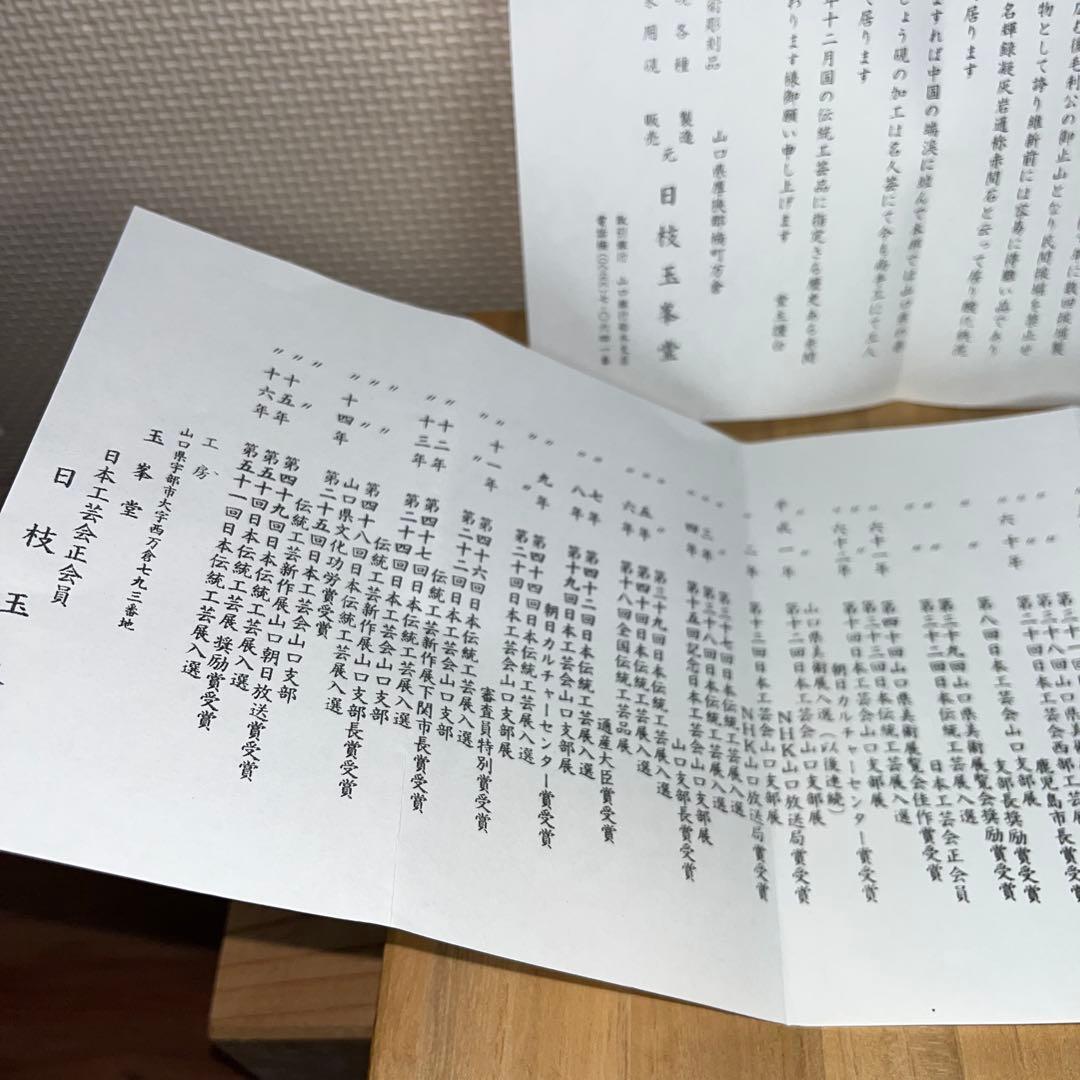 物として誇り維新前には容易に得難い品であり
名輝緑凝灰岩通称赤間石と云って居り
居ります
ますれば中国の端渓に並んで
しょう硯の加工は名人芸にて今も
て居ります
年十二月国の伝統工芸品に指定さる歴史ある赤間
おります様御願い申し上げます
堂主謹白
山口県厚狭郡楠町万倉
術彫刻品
硯各種 製造
赤間硯 販売
元 日枝玉峯堂
取引銀行 山口銀行
第三十八回山口県美術展
第二十回日本工芸会西部工芸展
鹿児島市長賞受賞
〃六十年
第八回日本工芸会山口支部展
支部長奨励賞受賞
〃 第三十九回山口県美術展覧会奨励賞受賞
〃 第三十二回日本伝統工芸展入選
日本工芸会正会員
〃六十一年 第四十回山口県美術展覧会佳作賞受賞
第三十三回日本伝統工芸展入選
〃六十二年 第十回日本工芸会山口支部展
朝日カルチャーセンター賞受賞
山口県美術展入選(以後連続)
平成一年 第十二回日本工芸会山口支部展
NHK山口放送局賞受賞
〃二年 第十三回日本工芸会山口支部展
NHK山口放送局賞受賞
〃 第三十七回日本伝統工芸展入選
〃三年 第三十八回日本伝統工芸展入選
〃四年 第十五回記念日本工芸会山口支部展
山口支部長賞受賞
〃 第三十九回日本伝統工芸展入選
〃五年 第四十回日本伝統工芸展入選
〃六年 第十八回全国伝統工芸品展
通産大臣賞受賞
〃七年 第四十二回日本伝統工芸展入選
〃八年 第十九回日本工芸会山口支部展
朝日カルチャーセンター賞受賞
〃九年 第四十四回日本伝統工芸展入選
〃〃 第二十回日本工芸会山口支部展
審査員特別賞受賞
〃十一年 第四十六回日本伝統工芸展入選
〃〃 第二十二回日本工芸会山口支部展
伝統工芸新作展下関市長賞受賞
〃十二年 第四十七回日本伝統工芸展入選
〃十三年 第二十四回日本工芸会山口支部
伝統工芸新作展山口支部長賞受賞
〃〃 第四十八回日本伝統工芸展入選
〃〃 山口県文化功労賞受賞
〃十四年 第二十五回日本工芸会山口支部
伝統工芸新作展山口朝日放送賞受賞
〃〃 第四十九回日本伝統工芸展入選
〃十五年 第五十回日本伝統工芸展 奨励賞受賞
〃十六年 第五十一回日本伝統工芸展入選
工房
山口県宇部市大字西万倉七九三番地
玉峯堂
日本工芸会正会員
日枝玉